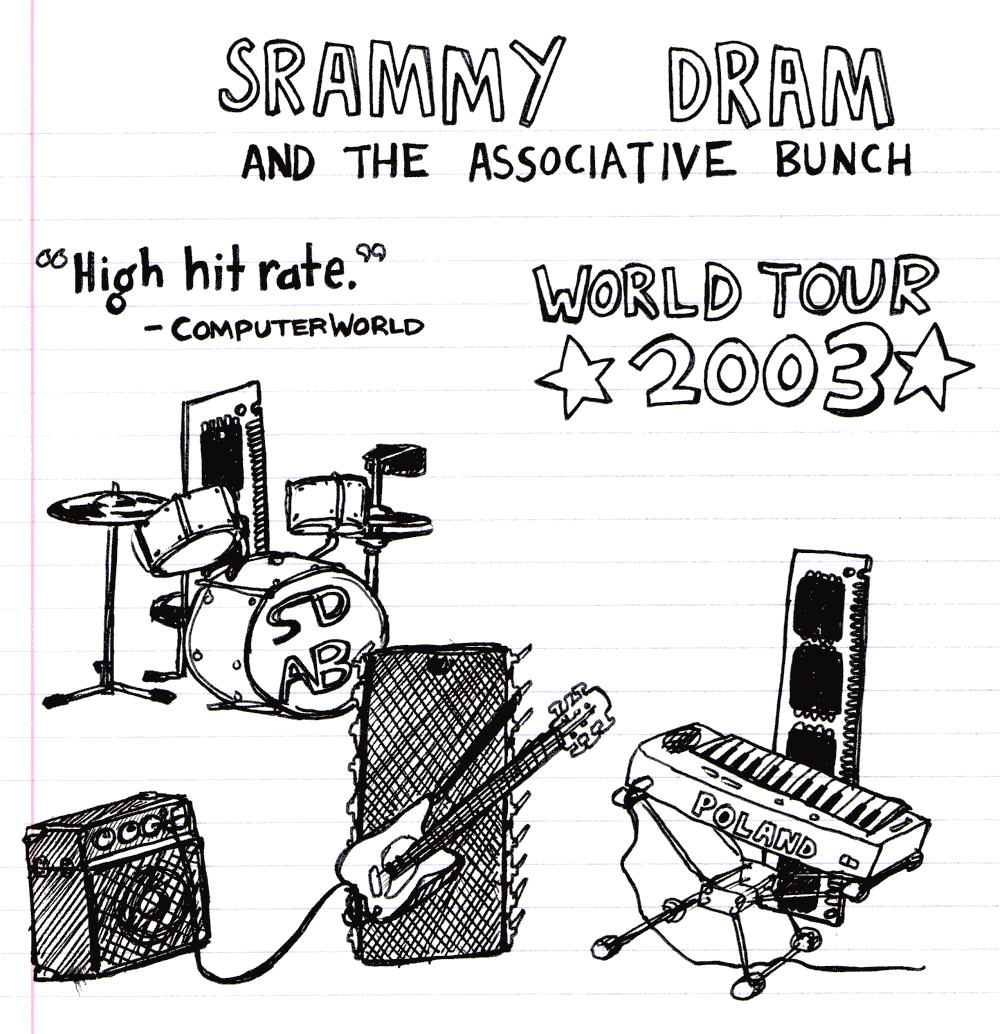 SRAMMY DRAM
AND THE ASSOCIATIVE BUNCH
"High hit rate."
- COMPUTERWORLD
WORLD TOUR
2003
SD
AB
OOGIE
POLAND